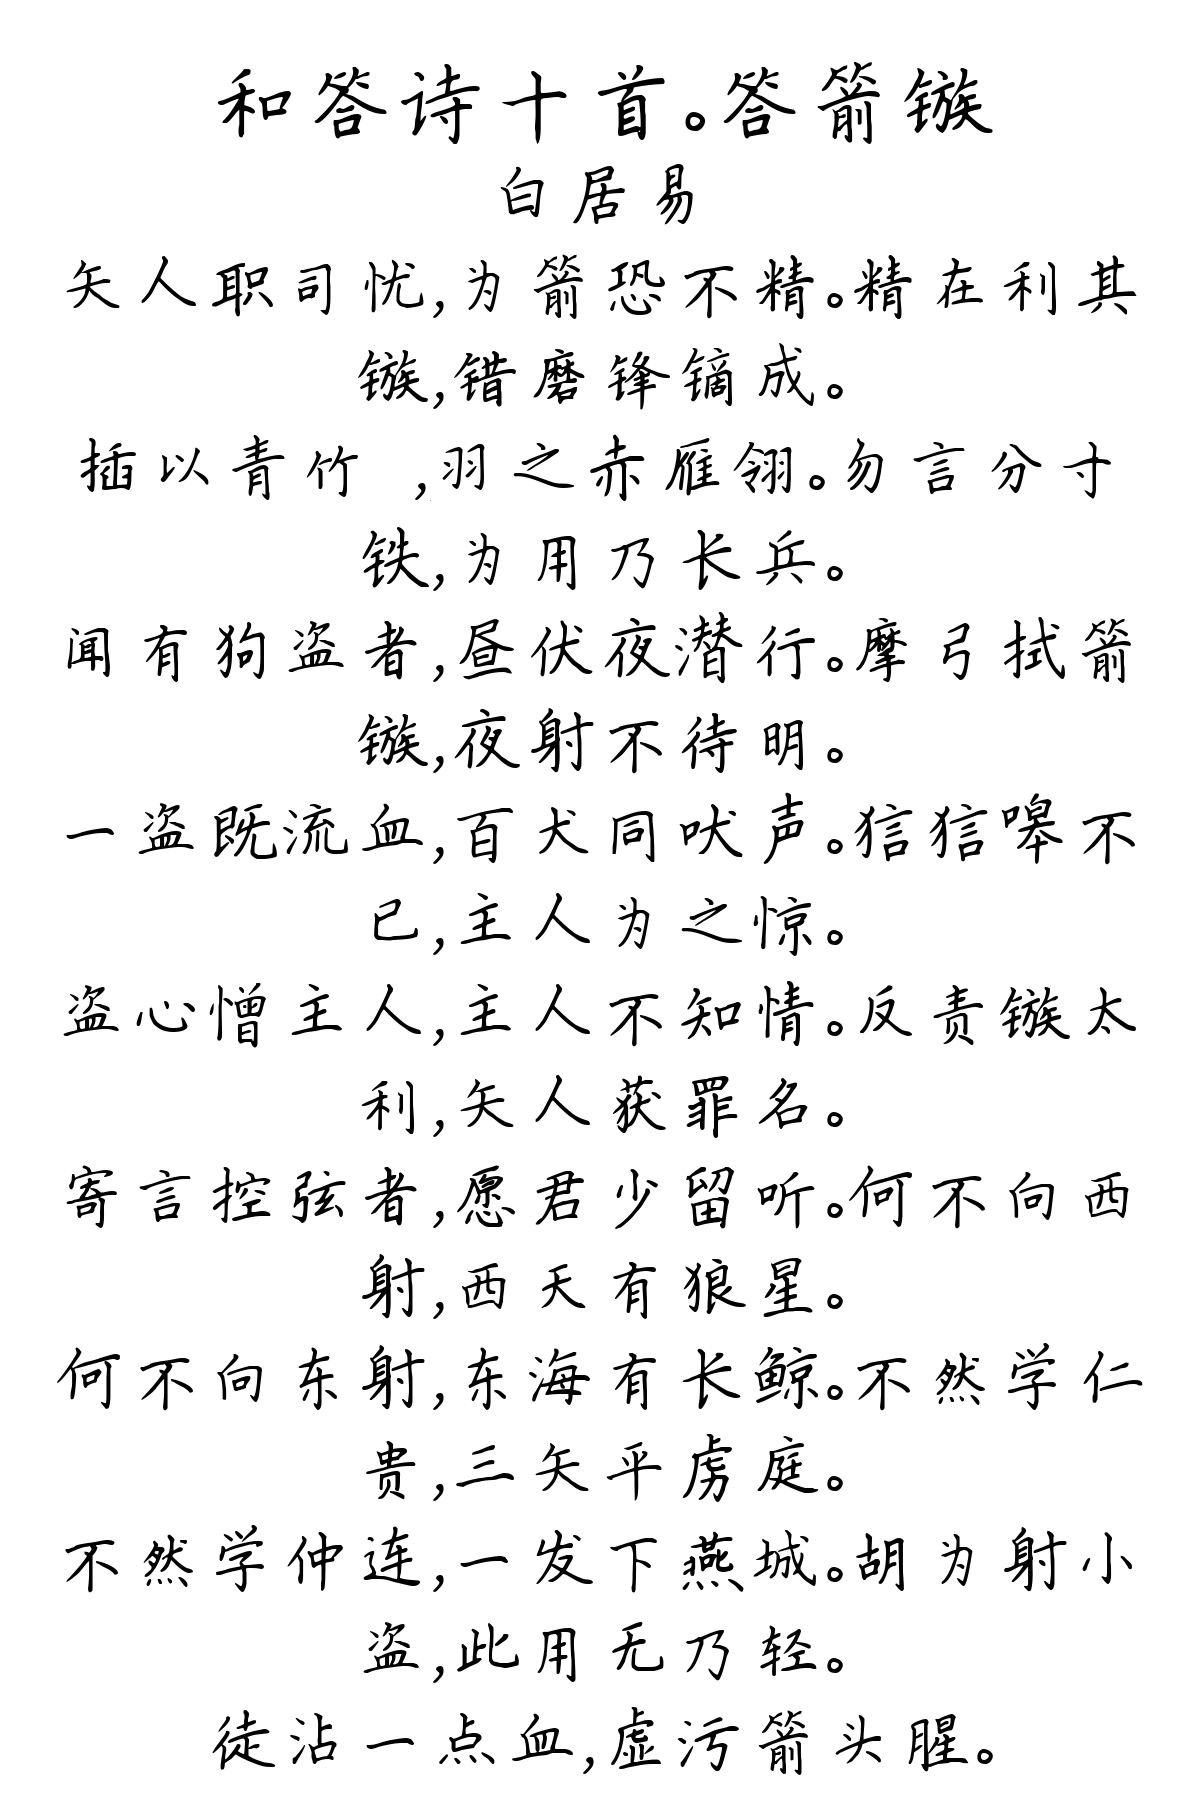 和答诗十首。答箭镞
白居易
矢人职司忧,为箭恐不精。精在利其
镞,错磨锋镝成。
插以青竹 ,羽之赤雁翎。勿言分寸
铁,为用乃长兵。
闻有狗盗者,昼伏夜潜行。摩弓拭箭
镞,夜射不待明。
一盗既流血,百犬同吠声。狺狺嗥不
已,主人为之惊。
盗心憎主人,主人不知情。反责镞太
利,矢人获罪名。
寄言控弦者,愿君少留听。何不向西
射,西天有狼星。
何不向东射,东海有长鲸。不然学仁
贵,三矢平虏庭。
不然学仲连,一发下燕城。胡为射小
盗,此用无乃轻。
徒沾一点血,虚污箭头腥。